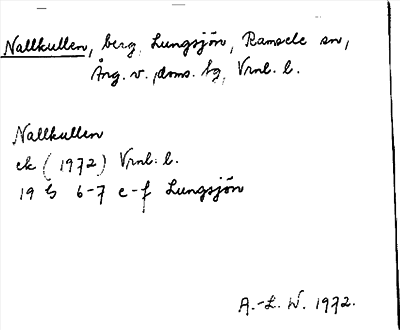 Nallkullen, berg, Lungsjön, Ramsele sn,
Ång. v., doms. tg, Vrnl. l.
Nallkullen
ek (1972) Vrnl. l.
19 G 6-7 e-f Lungsjön
A.-L. W. 1972.